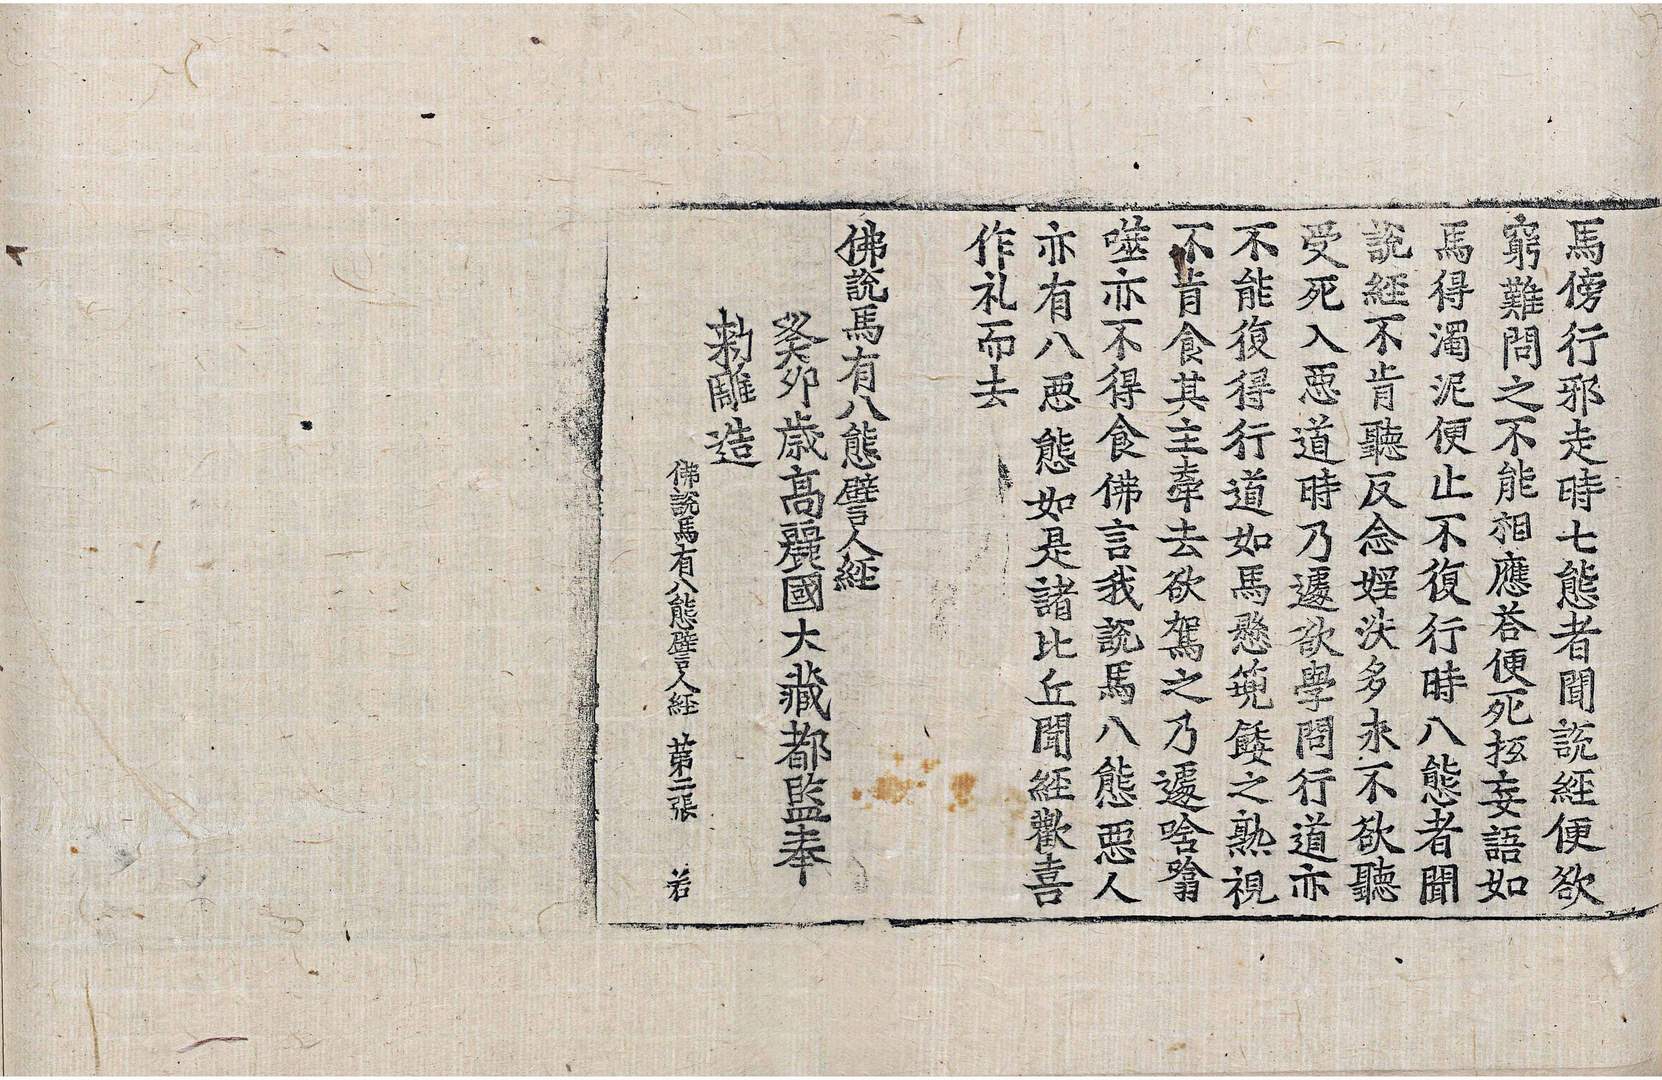 馬傍行邪走時七態者聞說經便欲
窮難問之不能相應荅便死抂妄語如
馬得濁泥便止不復行時八態者聞
說經不肯聽反念婬泆多求不欲聽
受死入惡道時乃遽欲學問行道亦
不能復得行道如馬懸篼餧之熟視
不肯食其主牽去欲駕之乃遽唅噏
噬亦不得食佛言我說馬八態惡人
亦有八惡態如是諸比丘聞經歡喜
作礼而去
佛說馬有八態譬人經
癸卯歲高麗國大藏都監奉
勑雕造
佛說馬有八態譬人經 第二張 若